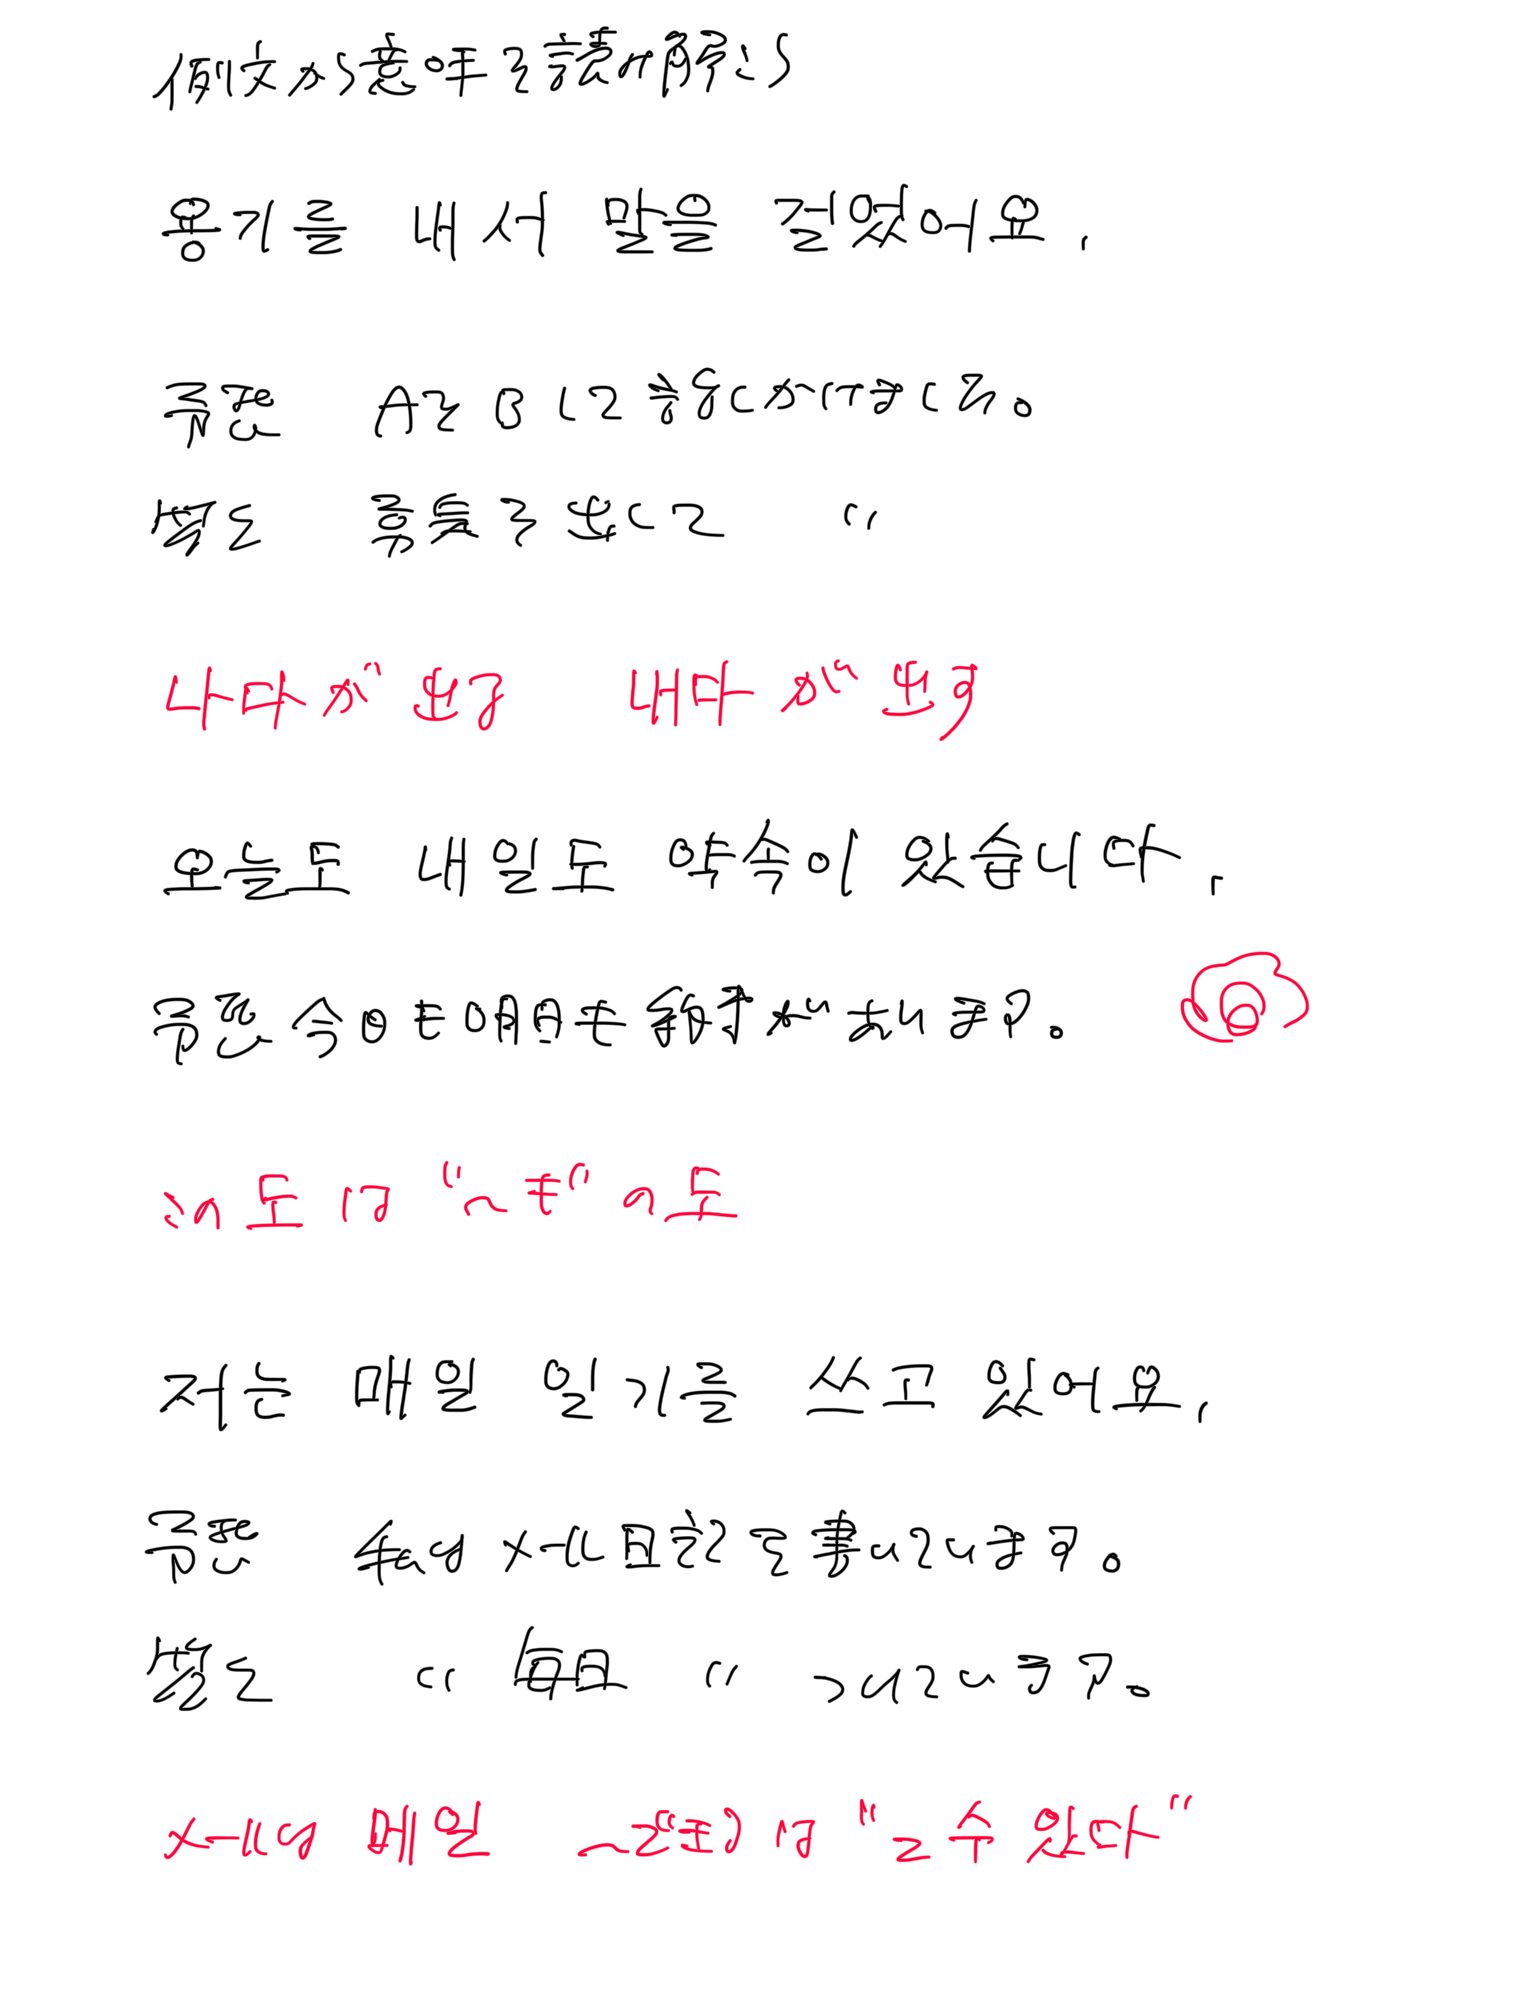 例文から意味を読み解こう
용기를 내서 말을 걸었어요.
쿠폰 AをBして話しかけました。
별도 勇気を出して 〃
나다が出る 내다が出す
오늘도 내일도 약속이 있습니다.
今日も明日も約束があります。
この 도 は "〜も" の 도
저는 매일 일기를 쓰고 있어요.
私はメール日記を書いています。
〃 毎日 〃 つけています。
メールは 메일 〜できるは "ㄹ 수 있다"